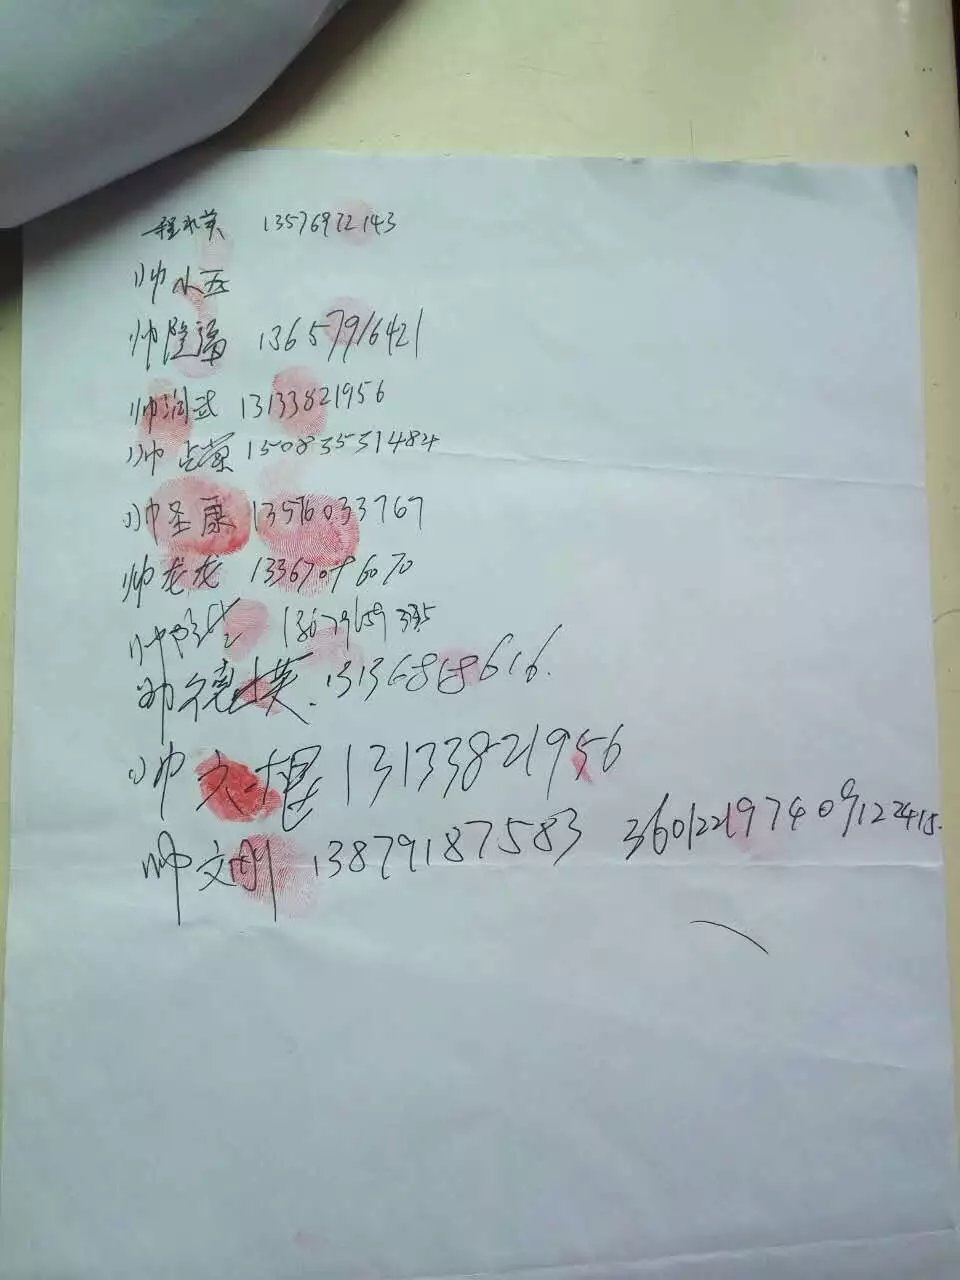 程水英 13576972143
帅小五
帅隆福 13657916421
帅润武 13133821956
帅志荣 15083551484
帅圣康 13576033767
帅龙龙 13367096070
帅 13679659
帅德模. 13136818616.
帅六根 13133821956
帅文刚 13879187583 360122197409122418.